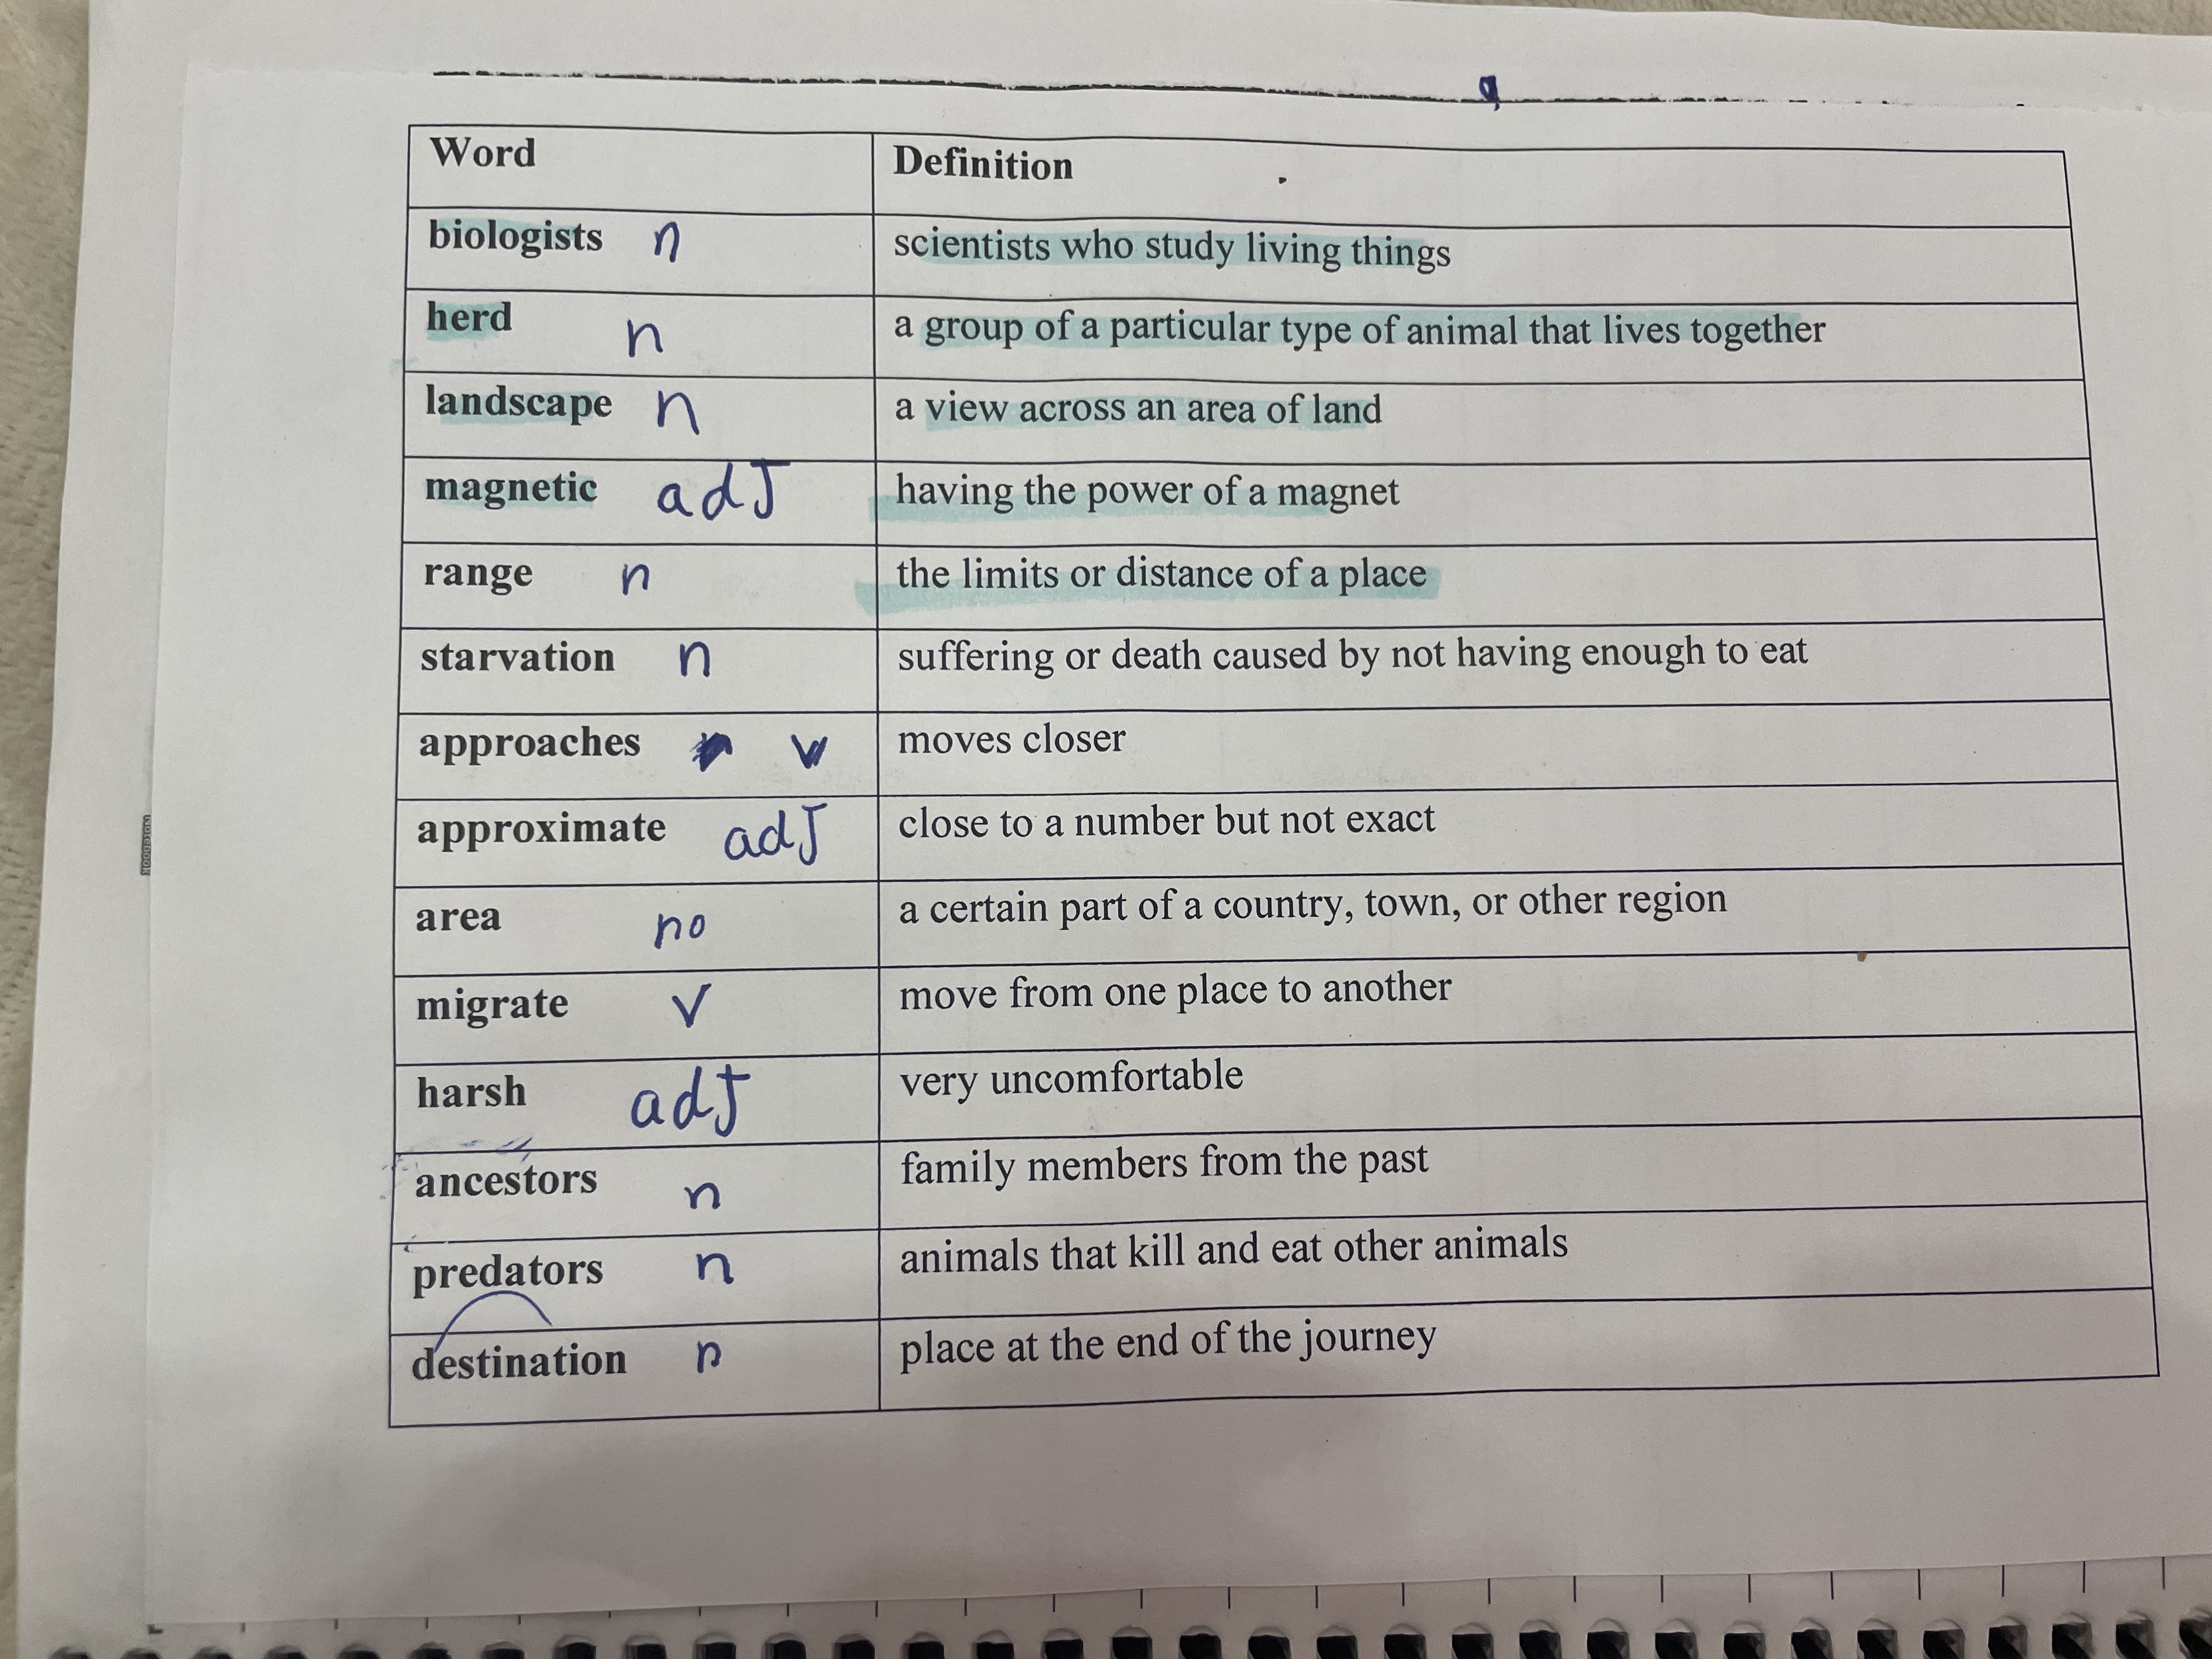 Word Definition
biologists n scientists who study living things
herd n a group of a particular type of animal that lives together
landscape n a view across an area of land
magnetic adJ having the power of a magnet
range n the limits or distance of a place
starvation n suffering or death caused by not having enough to eat
approaches v moves closer
approximate adJ close to a number but not exact
area no a certain part of a country, town, or other region
migrate v move from one place to another
harsh adJ very uncomfortable
ancestors n family members from the past
predators n animals that kill and eat other animals
destination n place at the end of the journey